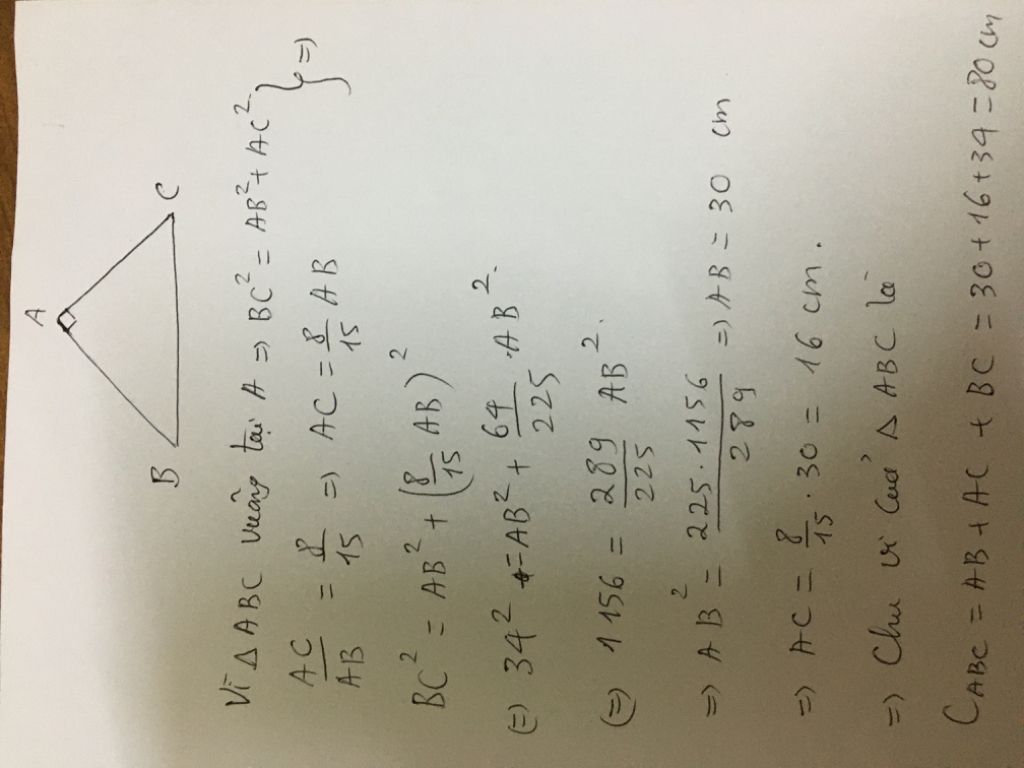 A
B C
Vì Δ ABC vuông tại A => BC² = AB² + AC² } =>
AC/AB = 8/15 => AC = 8/15 AB
BC² = AB² + (8/15 AB)²
(=) 34² = AB² + 64/225 . AB².
(=) 1156 = 289/225 AB².
=> AB² = 225.1156/289 => AB = 30 cm
=> AC = 8/15 . 30 = 16 cm.
=> Chu vi của Δ ABC là
C_ABC = AB + AC + BC = 30 + 16 + 34 = 80 cm